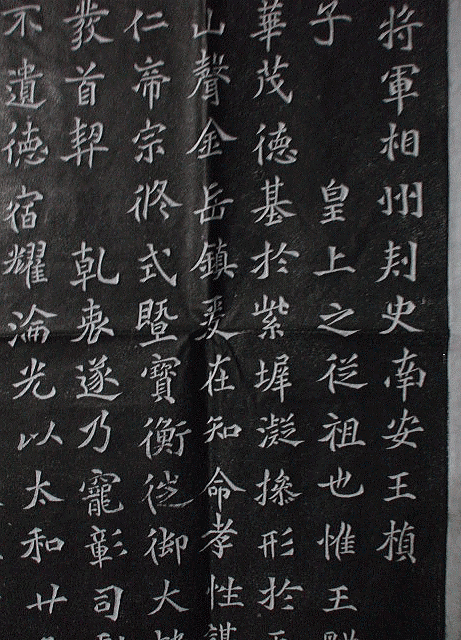 將軍相州刾史南安王楨
子 皇上之從祖也惟王
華茂德基於紫墀凝操形於
山聲金岳鎮爰在知命孝性諶
仁帝宗攸式暨寶衡徙御大
發首契 乾衷遂乃寵彰司
不遺德宿耀淪光以太和廿